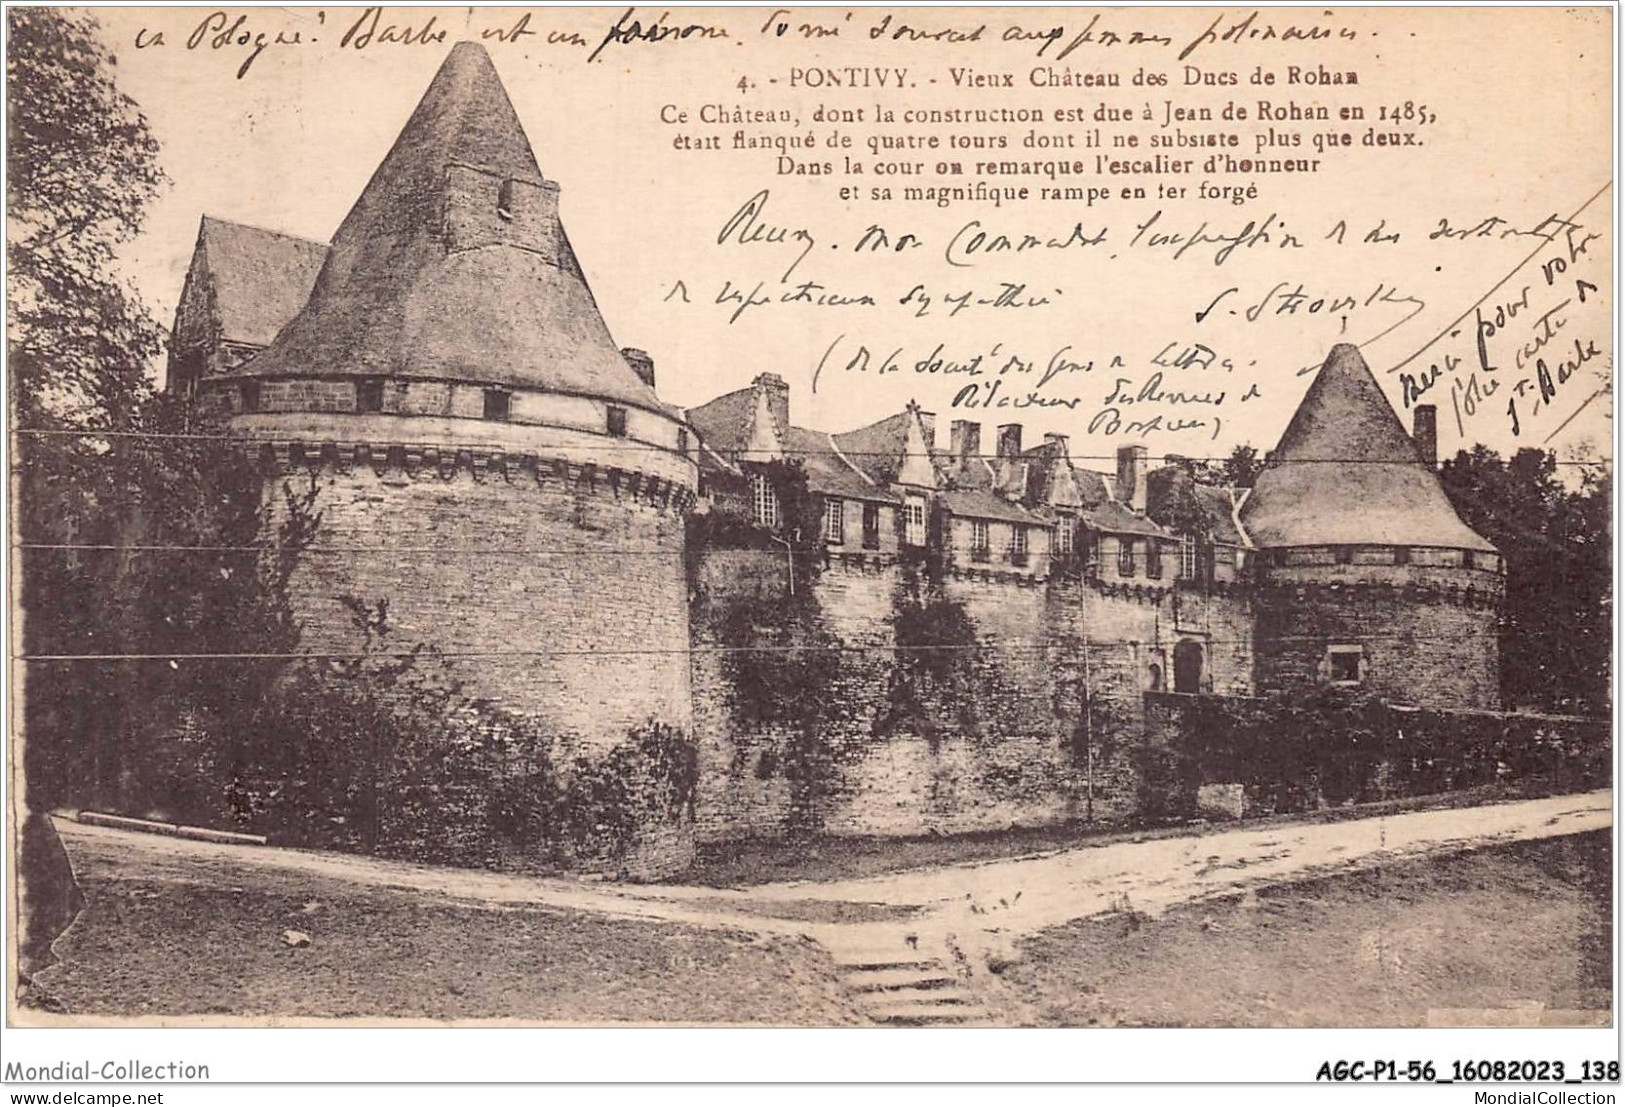 en Pologne! Barbe est un prénom donné souvent aux femmes polonaises.
4. - PONTIVY. - Vieux Château des Ducs de Rohan
Ce Château, dont la construction est due à Jean de Rohan en 1485,
était flanqué de quatre tours dont il ne subsiste plus que deux.
Dans la cour on remarque l'escalier d'honneur
et sa magnifique rampe en fer forgé
Recevez, mon Commandant, l'expression de mes sentiments
de respectueuse sympathie
S.
(de la Société des Gens de Lettres.
Rédacteur des Revues de
Merci pour votre
jolie carte de
Ste Barbe
Mondial-Collection
AGC-P1-56_16082023_138
delcampe.net
MondialCollection